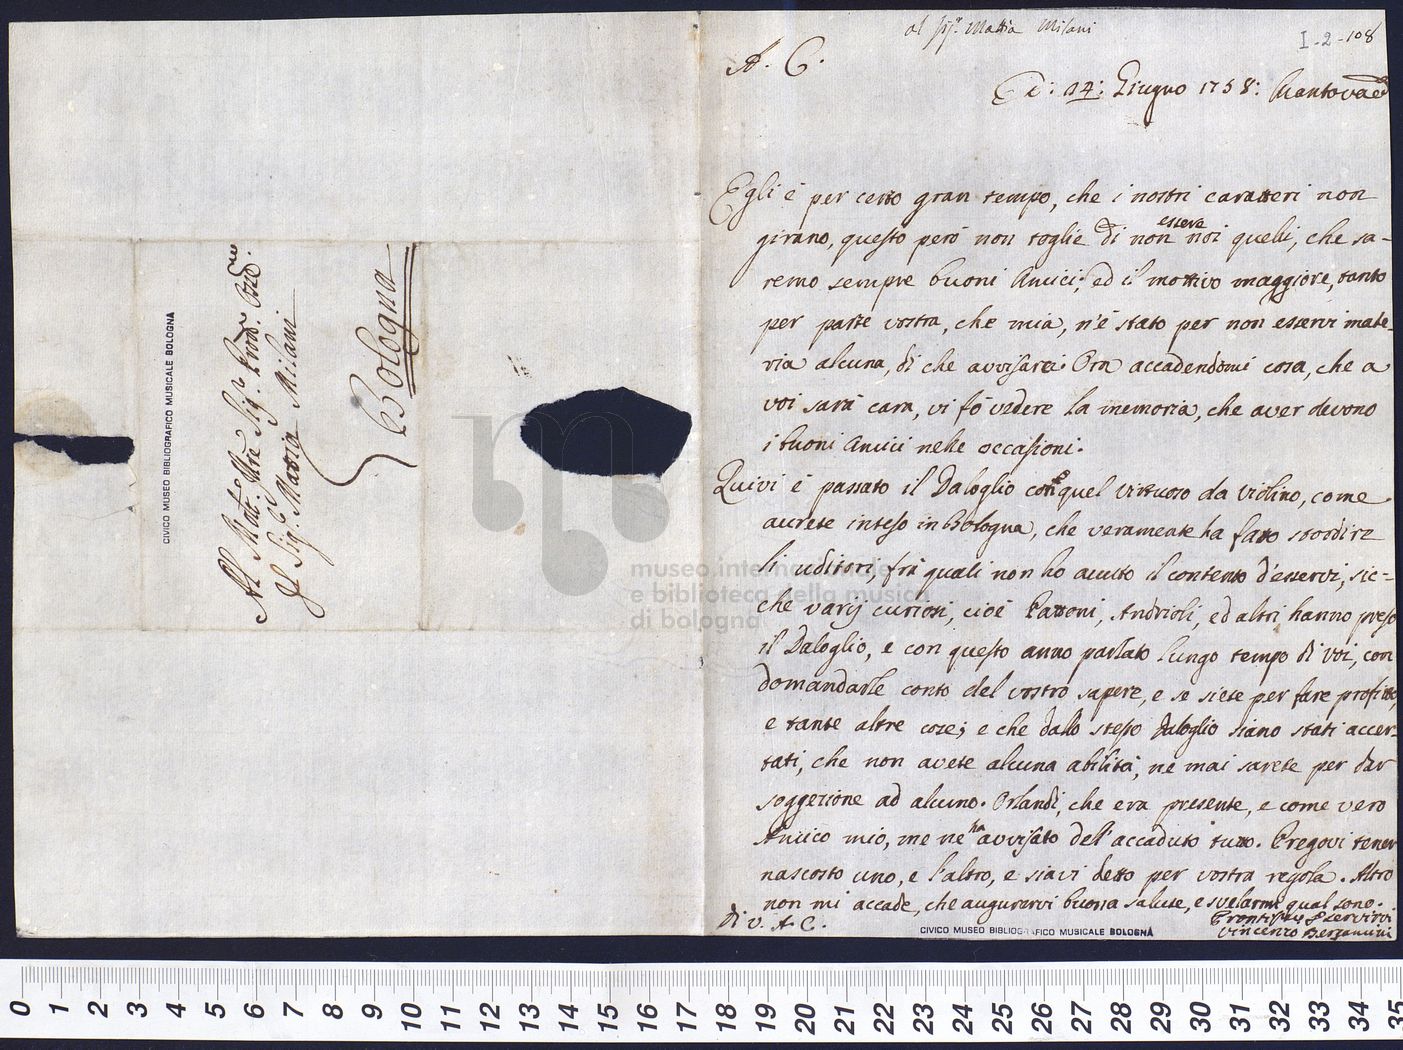 al Sig.r Mattia Milani
I-2-108
A. C.
14: Giugno 1758: Mantova
Egli è per certo gran tempo, che i nostri caratteri non
girano, questo però non toglie di non essere noi quelli, che sa-
remo sempre buoni Amici; ed il mottivo maggiore, tanto
per parte vostra, che mia, n'è stato per non esservi mate-
ria alcuna, di che avvisare. Ora accadendomi cosa, che a
voi sarà cara, vi fò vedere la memoria, che aver devono
i buoni Amici nelle occasioni.
Quivi è passato il Daloglio con quel virtuoso da violino, come
avrete inteso in Bologna, che veramente ha fatto stordire
li uditori, frà quali non ho avuto il contento d'esservi, sic-
che varij curiosi, cioè Pattoni, Andrioli, ed altri hanno preso
il Daloglio, e con questo anno parlato lungo tempo di voi, con
domandarle conto del vostro sapere, e se siete per fare profitto,
e tante altre cose; e che dallo stesso Daloglio siano stati accer-
tati, che non avete alcuna abilità, ne mai sarete per dar
soggezione ad alcuno. Orlandi, che era presente, e come vero
Amico mio, me ne ha avvisato dell'accaduto tutto. Pregovi tener
nascosto uno, e l'altro, e siavi detto per vostra regola. Altro
non mi accade, che augurarvi buona salute, e svelarmi qual sono.
di V. A. C.
Vincenzo Benzanini
CIVICO MUSEO BIBLIOGRAFICO MUSICALE BOLOGNA
Al Molt.o Ill.re Sig.r
Il Sig.r Mattia Milani
Bologna
CIVICO MUSEO BIBLIOGRAFICO MUSICALE BOLOGNA
museo internazionale
e biblioteca della musica
di bologna
0 1 2 3 4 5 6 7 8 9 10 11 12 13 14 15 16 17 18 19 20 21 22 23 24 25 26 27 28 29 30 31 32 33 34 35